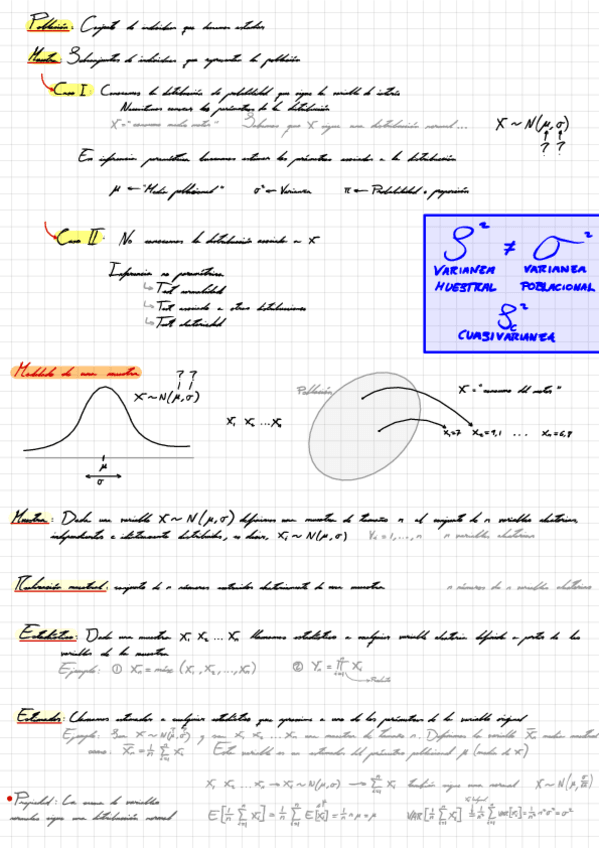 Población: Conjunto de individuos que deseamos estudiar
Muestra: Subconjuntos de individuos que representa la población
Caso I: Conocemos la distribución de probabilidad que sigue la variable de interés
Necesitamos conocer los parámetros de la distribución
X = "consumo medio motor" Sabemos que X sigue una distribución normal... X ~ N(μ, σ)
? ?
En inferencia paramétrica buscamos estimar los parámetros asociados a la distribución
μ ← "Media poblacional" σ² ← Varianza π ← Probabilidad o proporción
Caso II: No conocemos la distribución asociada a X
Inferencia no paramétrica
↳ Test normalidad
↳ Test asociado a otras distribuciones
↳ Test
S² ≠ σ²
VARIANZA MUESTRAL
VARIANZA POBLACIONAL
S²c
CUASIVARIANZA
Modelado de una muestra
? ?
X ~ N(μ, σ)
μ
σ
X₁ X₂ ... Xₙ
Población
X = "consumo del motor"
X₁=7 X₂=9,1 ... Xₙ=6,8
Muestra: Dada una variable X ~ N(μ, σ) definimos una muestra de tamaño n al conjunto de n variables aleatorias,
independientes e idénticamente distribuidas, es decir, Xᵢ ~ N(μ, σ) ∀i = 1, ..., n n variables aleatorias
Realización muestral: conjunto de n números extraídos aleatoriamente de una muestra n números de n variables aleatorias
Estadístico: Dada una muestra X₁ X₂ ... Xₙ llamamos estadístico a cualquier variable aleatoria definida a partir de las
variables de la muestra
Ejemplo: ① Xₙ = máx (X₁, X₂, ..., Xₙ) ② Yₙ = ∏ Xᵢ
Producto
Estimador: Llamamos estimador a cualquier estadístico que aproxima a uno de los parámetros de la variable original
Ejemplo: Sea X ~ N(μ, σ) y sean X₁ X₂ ... Xₙ una muestra de tamaño n. Definimos la variable X̄ₙ media muestral
como: X̄ₙ = 1/n Σ Xᵢ Esta variable es un estimador del parámetro poblacional μ (media de X)
Propiedad: La suma de variables
normales sigue una distribución normal
X₁ X₂ ... Xₙ → Xᵢ ~ N(μ, σ) → Σ Xᵢ también sigue una normal
E[1/n Σ Xᵢ] = 1/n Σ E[Xᵢ] = 1/n · n · μ = μ